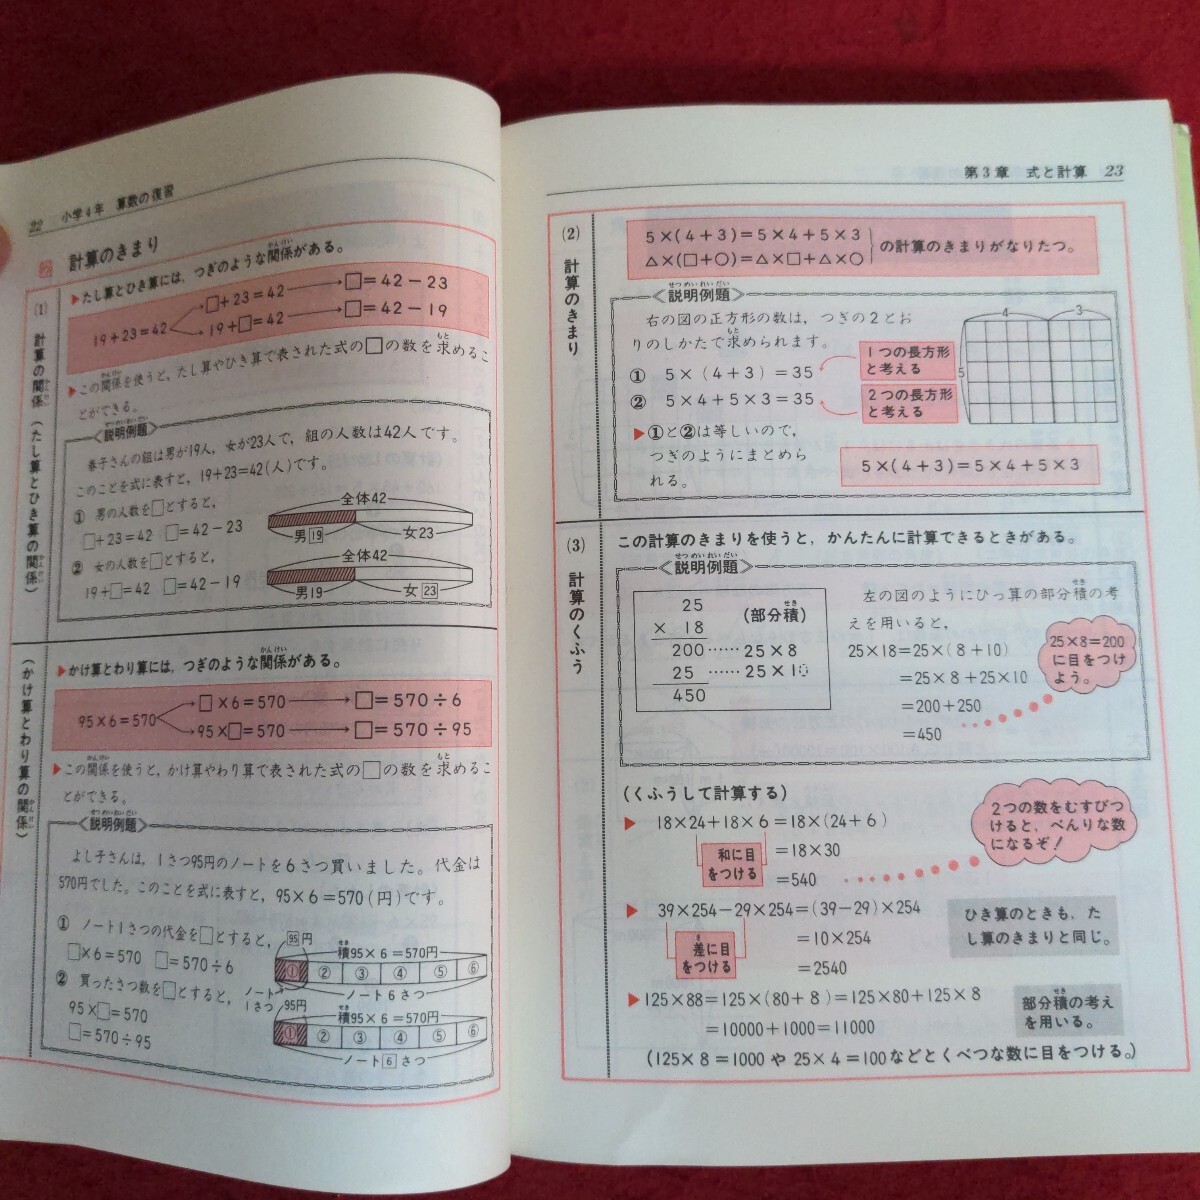 22 小学4年 算数の復習
計算のきまり
(1) 計算の関係(たし算とひき算の関係)
▶たし算とひき算には、つぎのような関係がある。
19+23=42
□+23=42 → □=42-23
19+□=42 → □=42-19
▶この関係を使うと、たし算やひき算で表された式の□の数を求めるこ
とができる。
〈説明例題〉
春子さんの組は男が19人,女が23人で,組の人数は42人です。
このことを式に表すと,19+23=42(人)です。
① 男の人数を□とすると,
□+23=42 □=42-23
全体42
男19 女23
② 女の人数を□とすると,
19+□=42 □=42-19
全体42
男19 女23
(かけ算とわり算の関係)
▶かけ算とわり算には、つぎのような関係がある。
95×6=570
□×6=570 → □=570÷6
95×□=570 → □=570÷95
▶この関係を使うと,かけ算やわり算で表された式の□の数を求めるこ
とができる。
〈説明例題〉
よし子さんは,1さつ95円のノートを6さつ買いました。代金は
570円でした。このことを式に表すと,95×6=570(円)です。
① ノート1さつの代金を□とすると,
□×6=570 □=570÷6
95円
積95×6=570円
① ② ③ ④ ⑤ ⑥
ノート1さつ
ノート6さつ
② 買ったさつ数を□とすると,
95×□=570
□=570÷95
95円
積95×6=570円
① ② ③ ④ ⑤ ⑥
ノート6さつ
第3章 式と計算 23
(2) 計算のきまり
5×(4+3)=5×4+5×3
△×(□+○)=△×□+△×○
の計算のきまりがなりたつ。
〈説明例題〉
右の図の正方形の数は,つぎの2とお
りのしかたで求められます。
① 5×(4+3)=35
1つの長方形
と考える
② 5×4+5×3=35
2つの長方形
と考える
4 3
5
▶①と②は等しいので,
つぎのようにまとめら
れる。
5×(4+3)=5×4+5×3
(3) 計算のくふう
この計算のきまりを使うと,かんたんに計算できるときがある。
〈説明例題〉
25
×18 (部分積)
200……25×8
25 ……25×10
450
左の図のようにひっ算の部分積の考
えを用いると,
25×18=25×(8+10)
=25×8+25×10
=200+250
=450
25×8=200
に目をつけ
よう。
(くふうして計算する)
▶ 18×24+18×6=18×(24+6)
=18×30
=540
和に目
をつける
2つの数をむすびつ
けると,べんりな数
になるぞ!
▶ 39×254-29×254=(39-29)×254
=10×254
=2540
差に目
をつける
ひき算のときも,た
し算のきまりと同じ。
▶125×88=125×(80+8)=125×80+125×8
=10000+1000=11000
部分積の考え
を用いる。
(125×8=1000や25×4=100などとくべつな数に目をつける。)